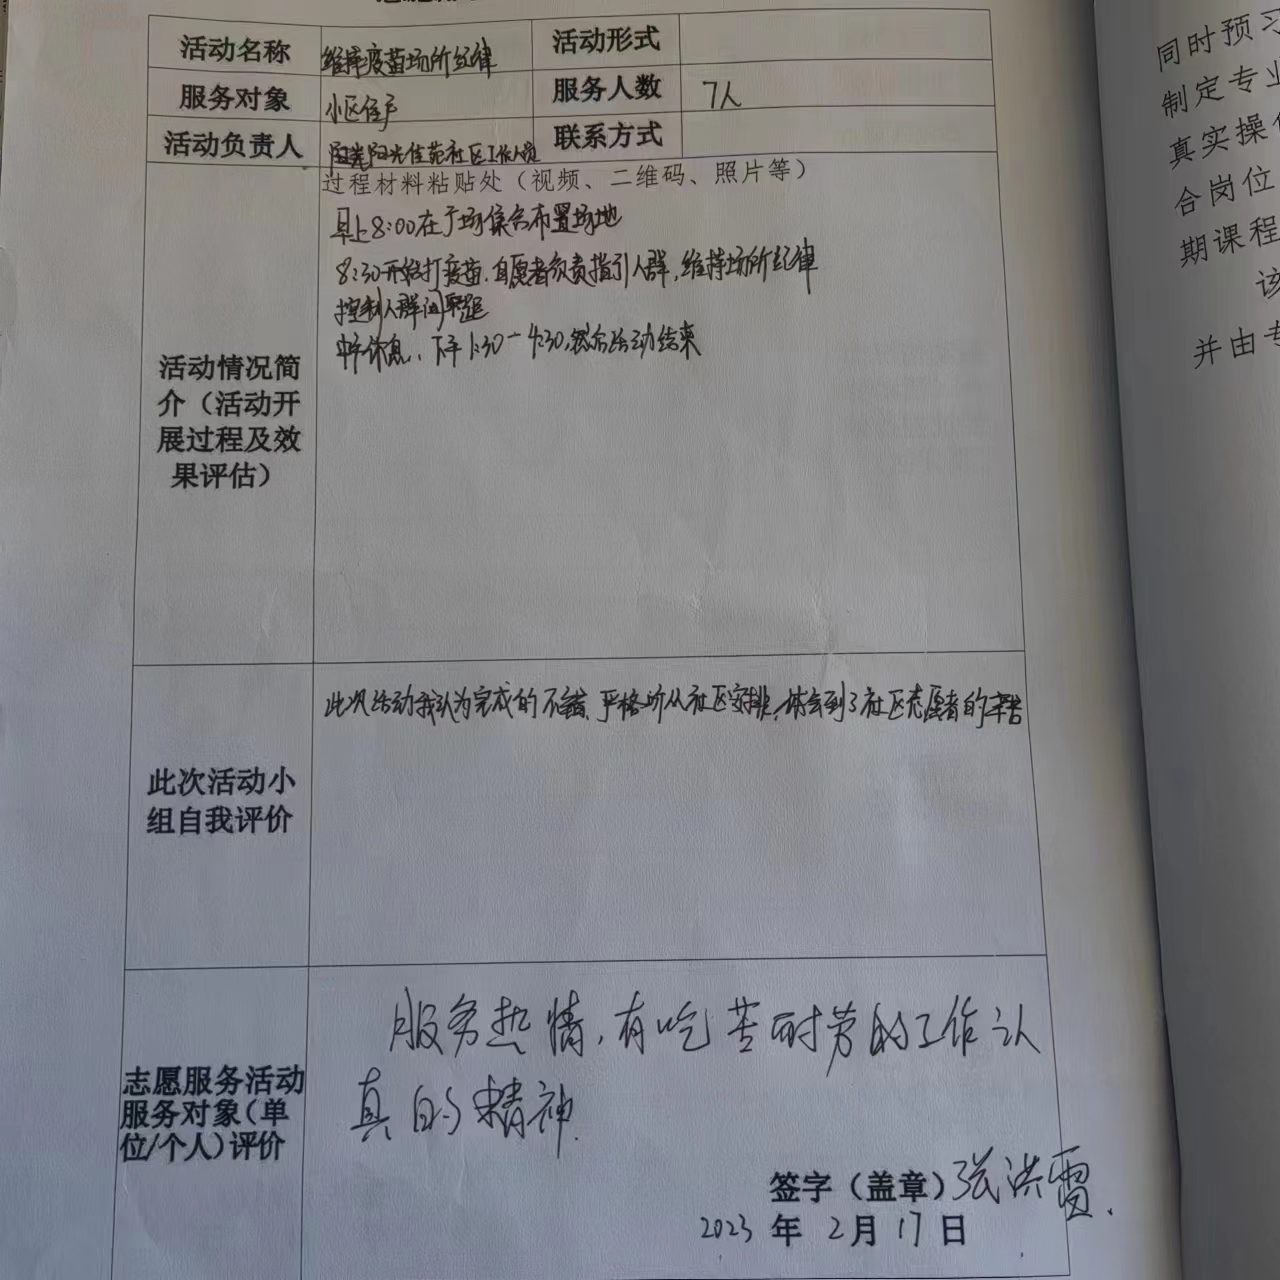 活动名称 维持疫苗场所纪律 活动形式
服务对象 小区住户 服务人数 7人
活动负责人 阳光佳苑社区工作人员 联系方式
过程材料粘贴处（视频、二维码、照片等）
早上8:00在广场集合布置场地
8:30开始打疫苗.自愿者负责指引人群,维持场所纪律
控制人群间距
中午休息、下午1:30-4:30.然后活动结束
活动情况简
介（活动开
展过程及效
果评估）
此次活动我认为完成的不错.严格听从社区安排,体会到了社区志愿者的辛苦
此次活动小
组自我评价
服务热情,有吃苦耐劳的工作认
真的精神.
志愿服务活动
服务对象(单
位/个人)评价
签字（盖章）张洪雷.
2023年2月17日
同时预习
制定专业
真实操作
合岗位
期课程
该
并由专